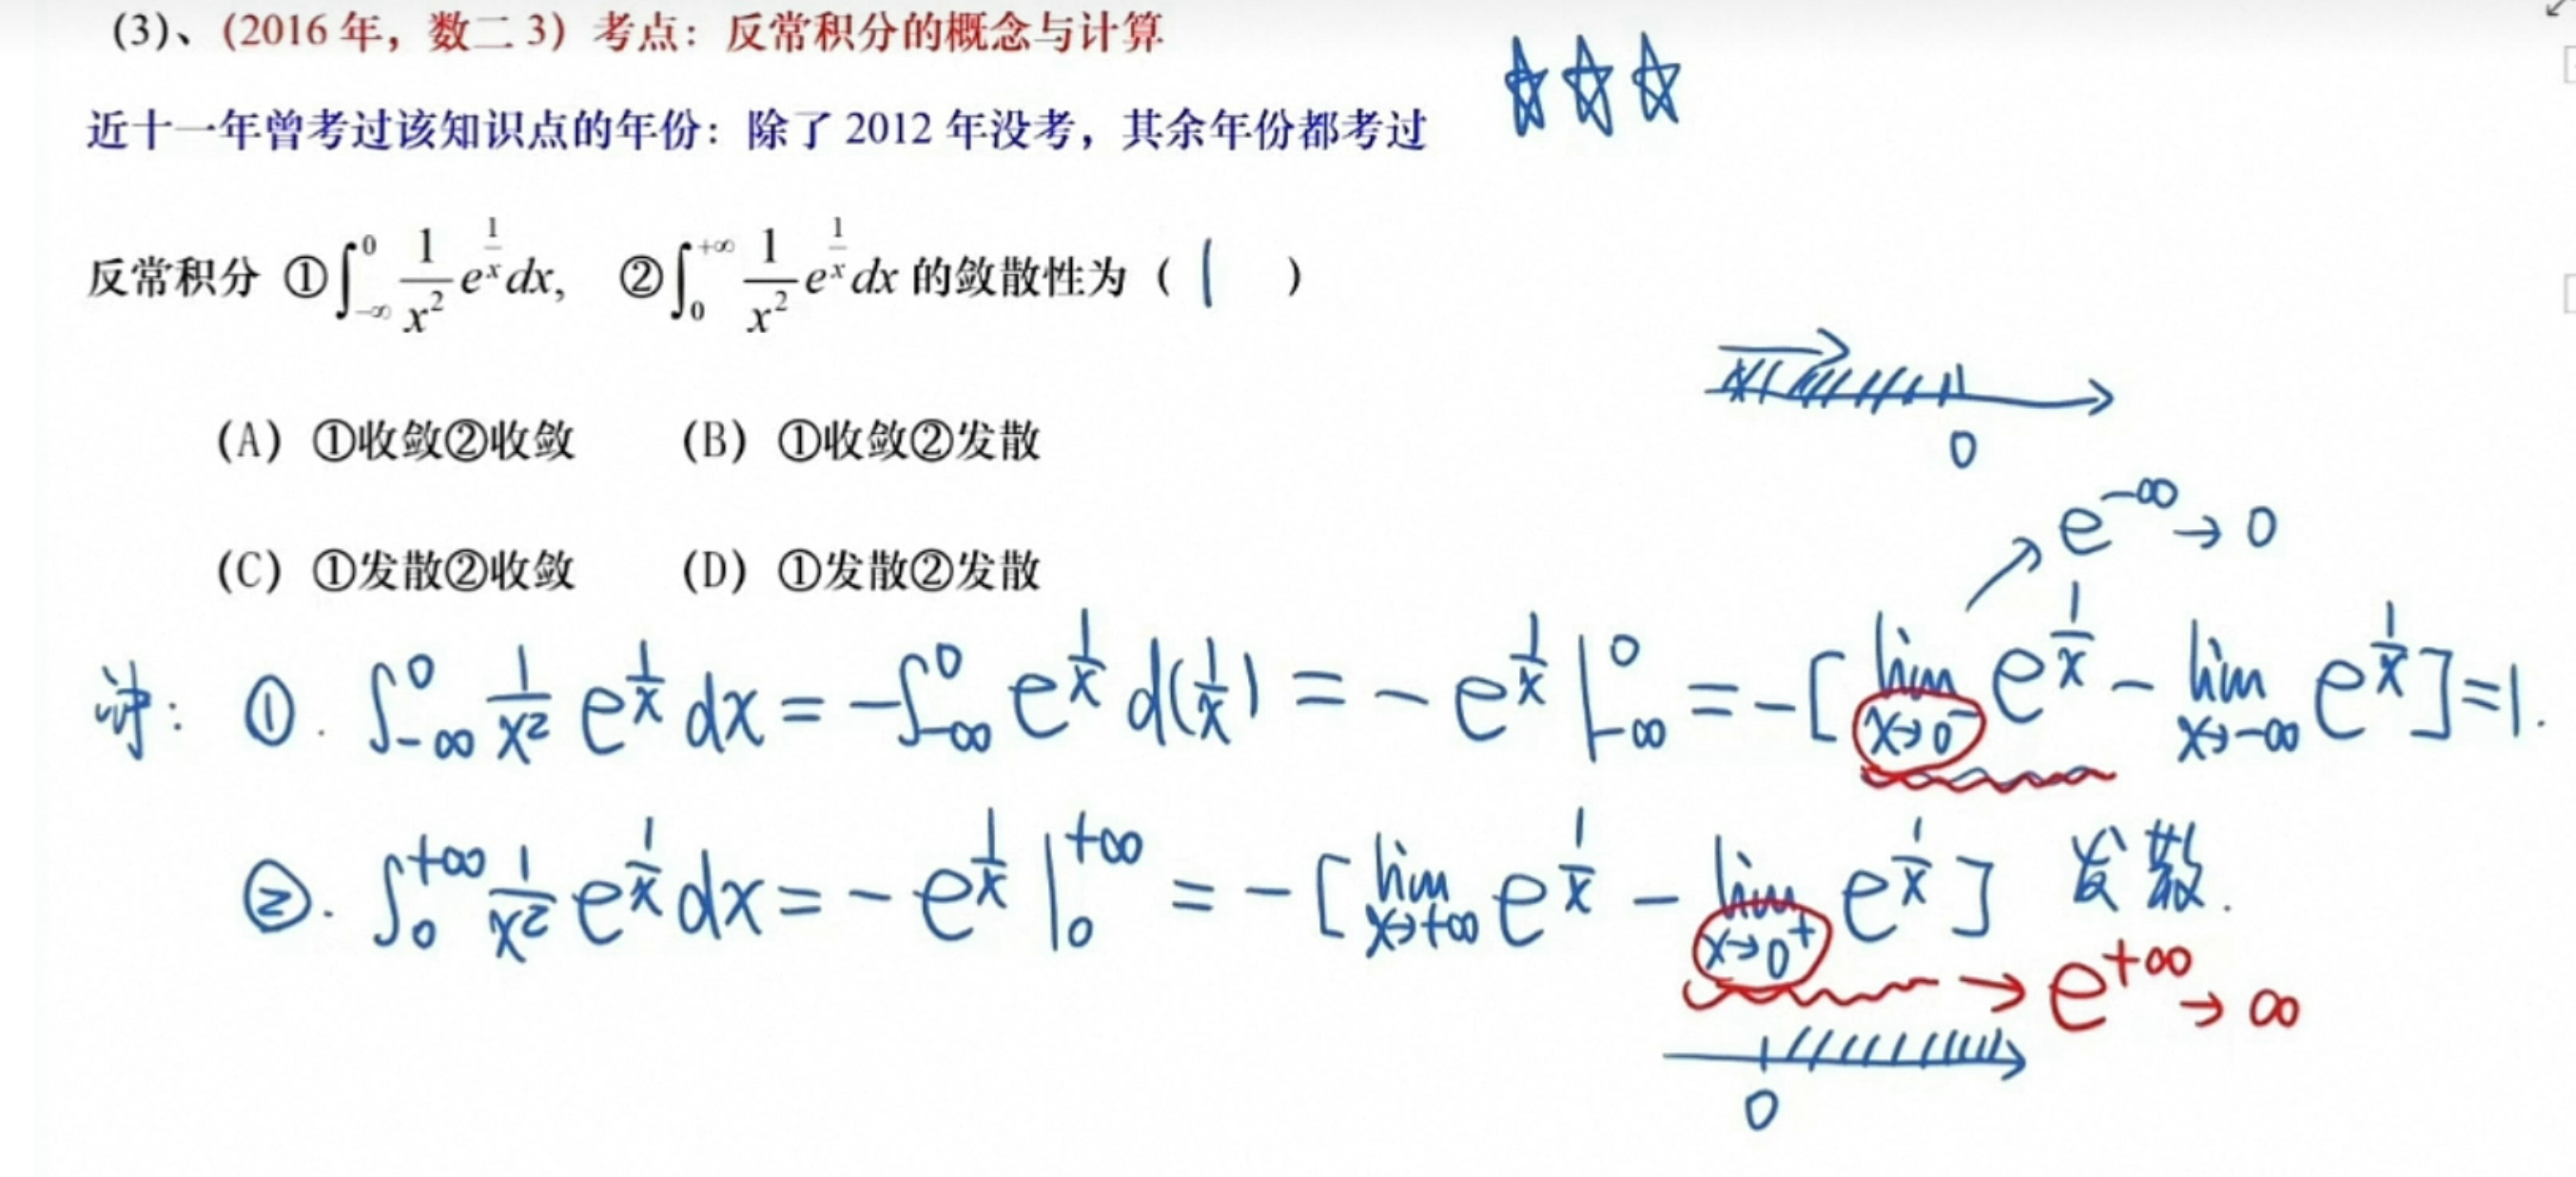 (3)、(2016 年，数二 3) 考点：反常积分的概念与计算
近十一年曾考过该知识点的年份：除了 2012 年没考，其余年份都考过
反常积分 ①∫_{-∞}^{0} \frac{1}{x^2} e^{\frac{1}{x}} dx, ②∫_{0}^{+∞} \frac{1}{x^2} e^{\frac{1}{x}} dx 的敛散性为（ ）
(A) ①收敛②收敛 (B) ①收敛②发散
(C) ①发散②收敛 (D) ①发散②发散
0
e^{-∞} → 0
①. ∫_{-∞}^{0} \frac{1}{x^2} e^{\frac{1}{x}} dx = -∫_{-∞}^{0} e^{\frac{1}{x}} d(\frac{1}{x}) = -e^{\frac{1}{x}} |_{-∞}^{0} = -[lim_{x→0^-} e^{\frac{1}{x}} - lim_{x→-∞} e^{\frac{1}{x}}] = 1.
②. ∫_{0}^{+∞} \frac{1}{x^2} e^{\frac{1}{x}} dx = -e^{\frac{1}{x}} |_{0}^{+∞} = -[lim_{x→+∞} e^{\frac{1}{x}} - lim_{x→0^+} e^{\frac{1}{x}}] 发散.
e^{+∞} → ∞
0